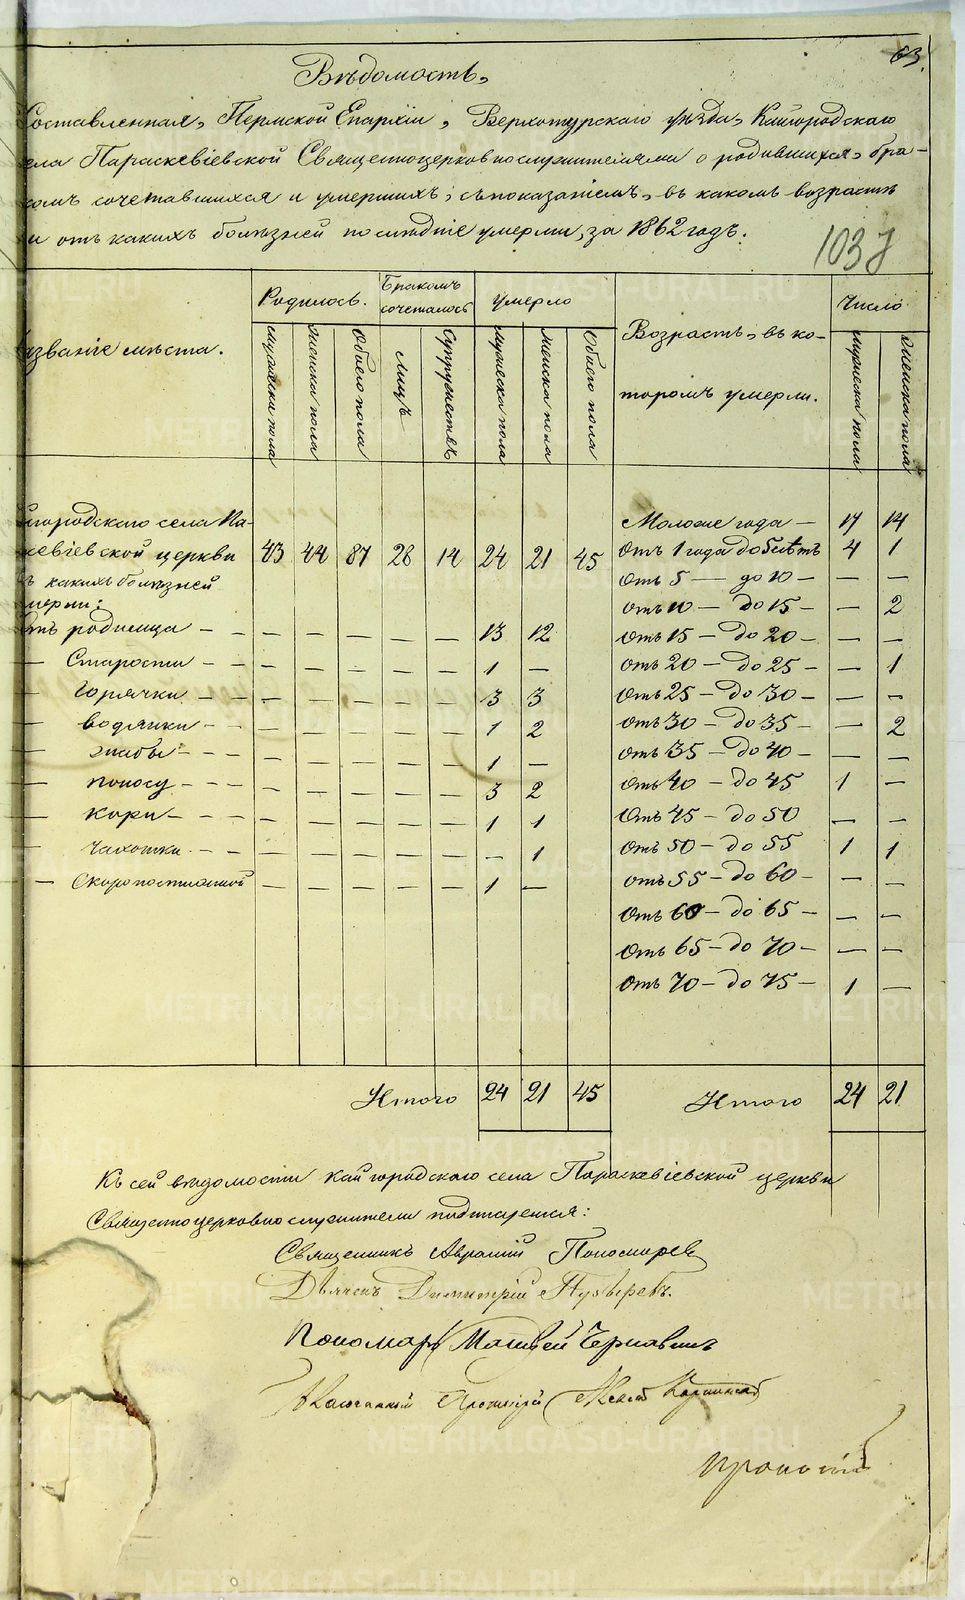 63.
Вѣдомость,
Составленная, Пермской Епархіи, Верхотурскаго уѣзда, Кайгородскаго
села Параскевіевской Священноцерковнослужителями о родившихся, бра-
комъ сочетавшихся и умершихъ, съ показаніемъ, въ какомъ возрастѣ
и отъ какихъ болѣзней послѣдніе умерли, за 1862 годъ.
103
азваніе мѣста.
Родилось. Бракомъ сочеталось Умерло Возрастъ, въ ко-
торомъ умерли. Число
мужеска пола женска пола Обоего пола лицъ Супружествъ мужеска пола женска пола Обоего пола мужеска пола женска пола
йгородскаго села Па- Моложе года — 17 14
кевіевской церкви 43 44 87 28 14 24 21 45 Отъ 1 года до 5 лѣтъ 4 1
ъ какихъ болѣзней Отъ 5 — до 10 — — —
мерли: Отъ 10 — до 15 — — 2
Отъ родимца — — — — — — 13 12 Отъ 15 — до 20 — — —
— Старости — — — — — — 1 — Отъ 20 — до 25 — — 1
— Горячки — — — — — — 3 3 Отъ 25 — до 30 — — —
— водянки — — — — — — 1 2 Отъ 30 — до 35 — — 2
— жабы — — — — — — 1 — Отъ 35 — до 40 — — —
— поносу — — — — — — 3 2 Отъ 40 — до 45 1 —
— кори — — — — — — 1 1 Отъ 45 — до 50 — —
— чахотки — — — — — — — 1 Отъ 50 — до 55 1 1
— Скоропостижной — — — — — 1 — Отъ 55 — до 60 — — —
Отъ 60 — до 65 — — —
Отъ 65 — до 70 — — —
Отъ 70 — до 75 — 1 —
Итого 24 21 45 Итого 24 21
Къ сей вѣдомости Кайгородскаго села Параскевіевской церкви
Священноцерковнослужители подписуемся:
Священникъ Авраамій Пономарев
Дьячекъ Димитрій Пузыревъ.
Пономарь Матвей Чернавинъ
Протоіерей
METRIKI.GASO-URAL.RU